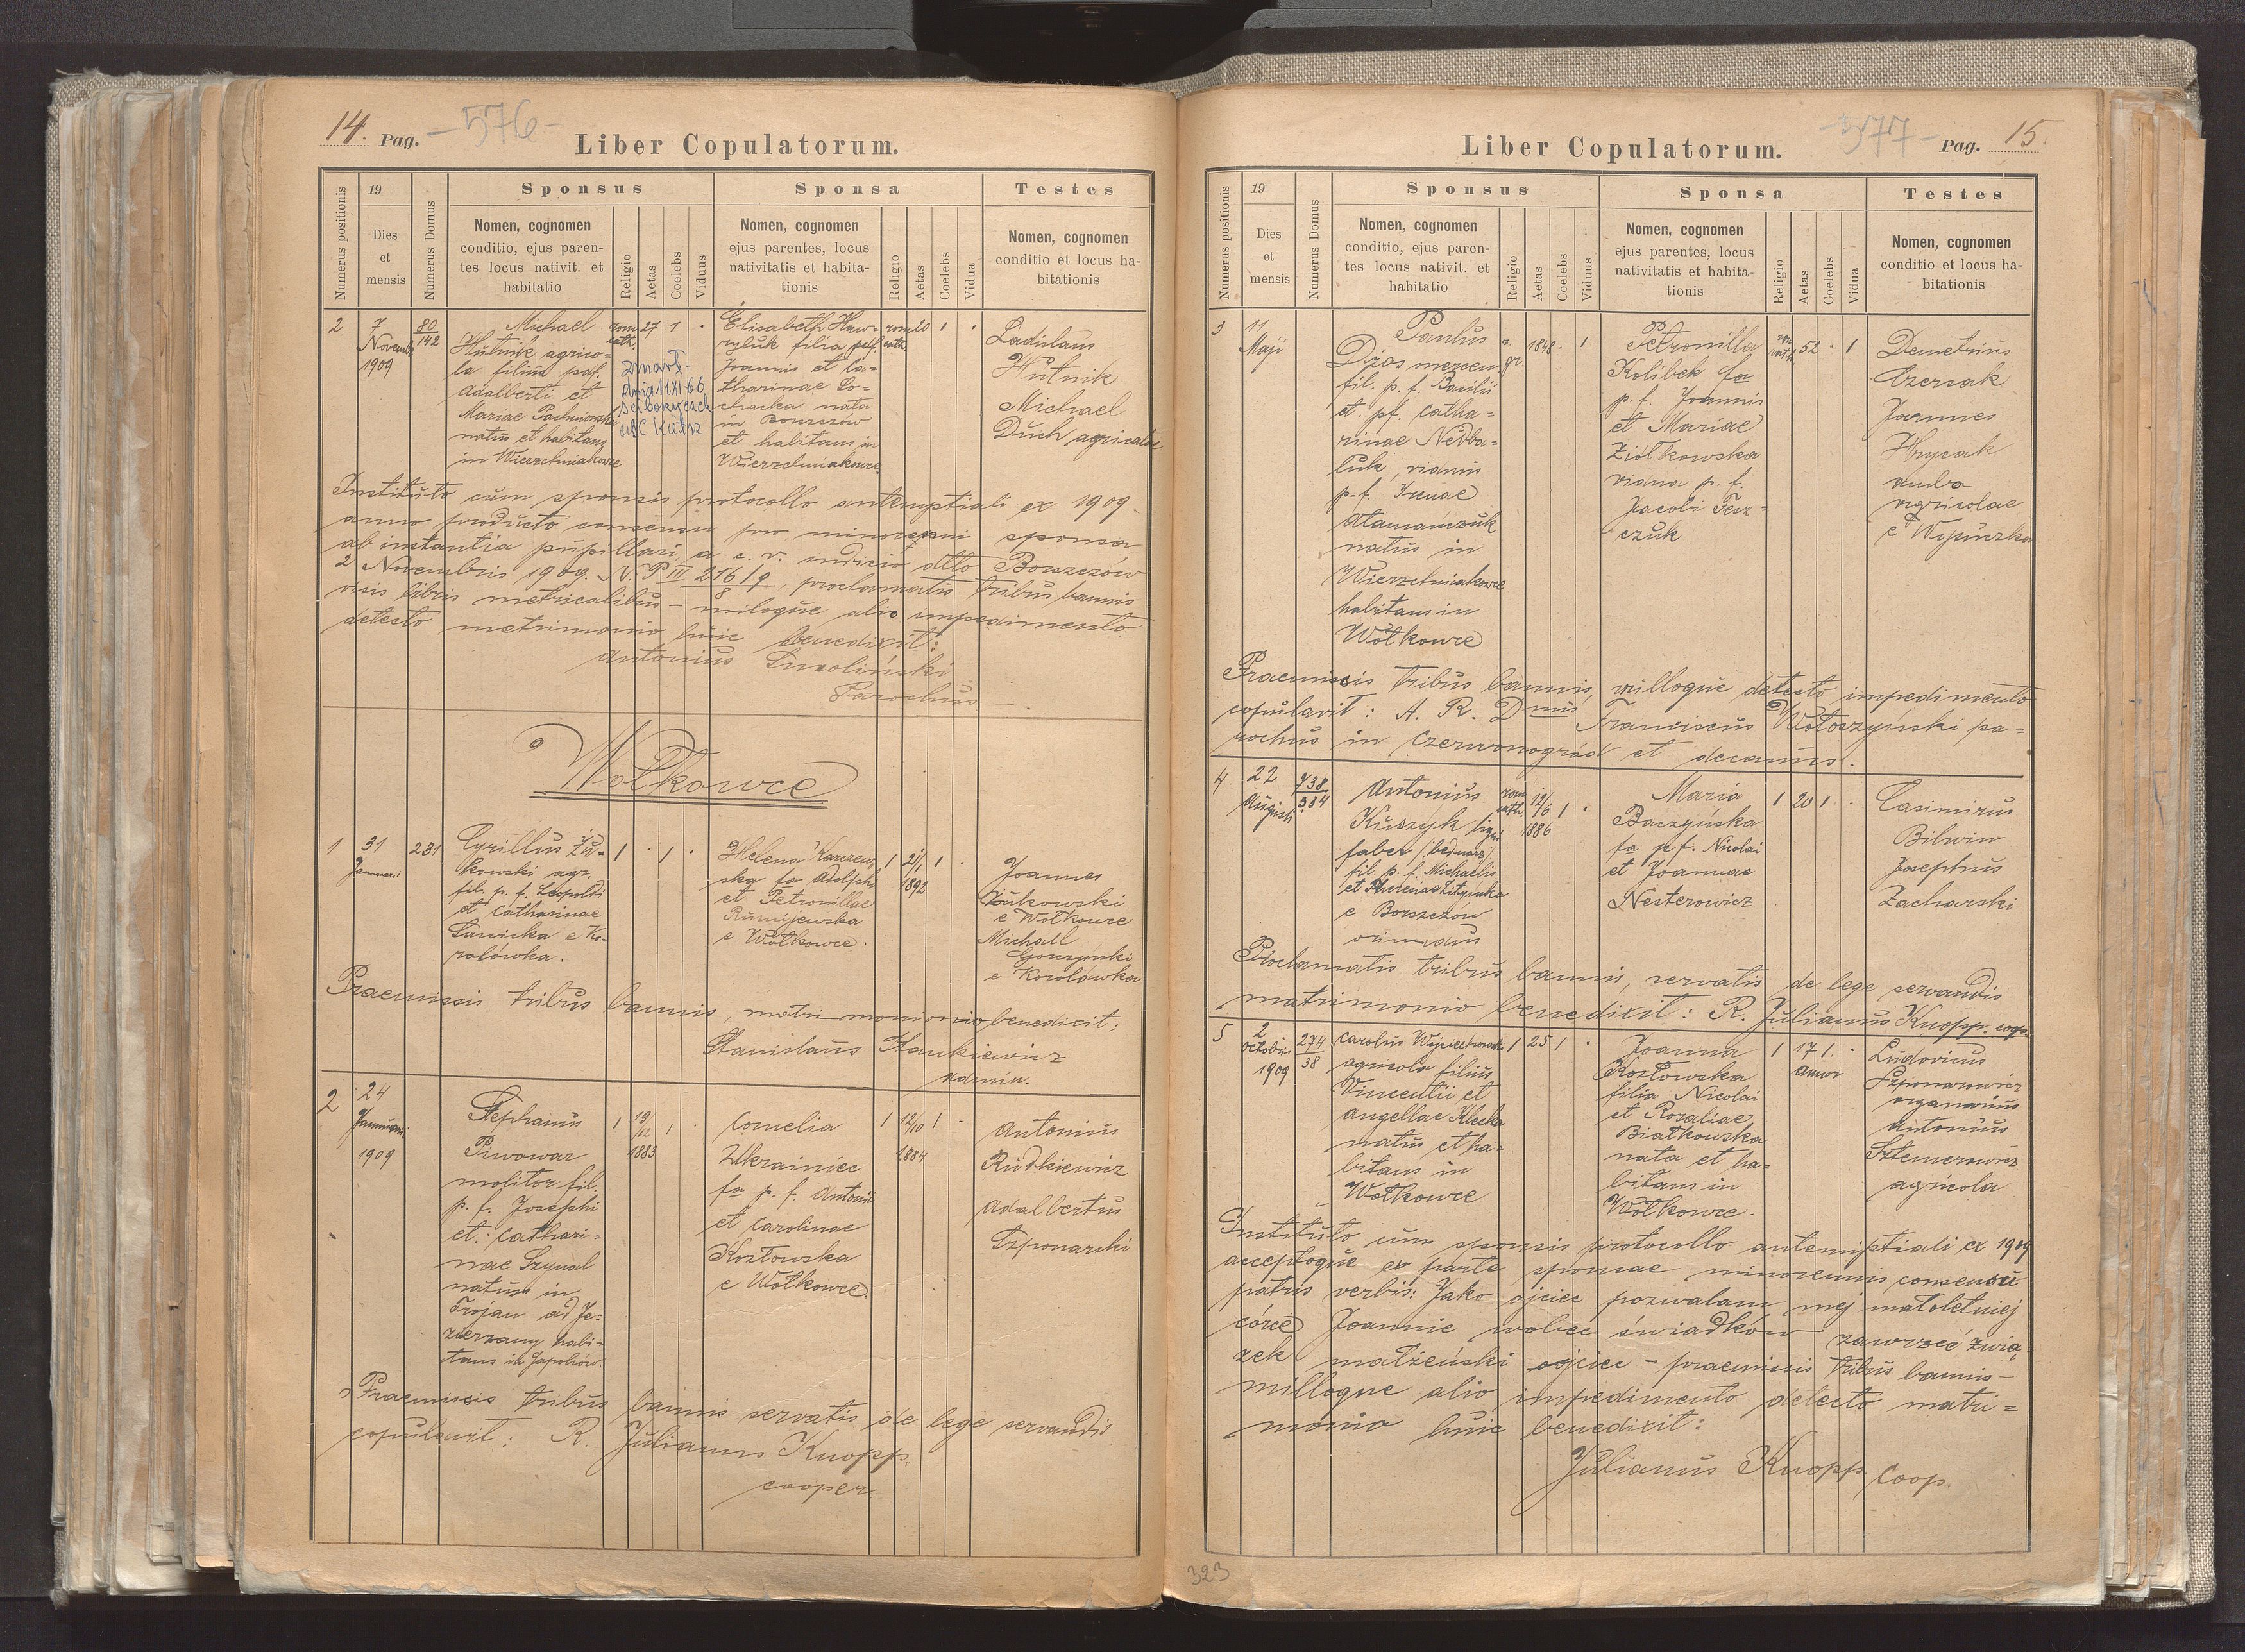 14. Pag. - 576 -
Liber Copulatorum.
Numerus positionis
19
Dies
et
mensis
Numerus Domus
Sponsus
Nomen, cognomen
conditio, ejus paren-
tes locus nativit. et
habitatio
Religio
Aetas
Coelebs
Viduus
Sponsa
Nomen, cognomen
ejus parentes, locus
nativitatis et habita-
tionis
Religio
Aetas
Coelebs
Vidua
Testes
Nomen, cognomen
conditio et locus ha-
bitationis
2
7
Novemb
1909
80
142
Michael
Hutnik agrico-
la filius pf.
Adalberti et
Mariae
natus et habitans
in Wierzchniakowce
rom
cath.
27 1 .
Elisabeth Haw-
ryluk filia pdf.
Joannis et Ca-
tharinae So-
chacka nata
in Borszczów
et habitans in
Wierzchniakowce
rom
cath
20 1 .
Ladislaus
Hutnik
Michael
Duch agricolae
Instituto cum sponsis protocollo antenuptiali ex 1909
anno producto consensu pro minorenni sponsa
ab instantia pupillari a c. r. iudicio dtto Borszczów
2 Novembris 1909. N. P III 216/9, proclamatis tribus bannis
8
visis libris metricalibus - nulloque alio impedimento
detecto metrimonio huic benedixit:
Antonius Smoliński
Parochus
Wołkowce
1
31
Januarii
231
Cyrillus Żu-
kowski agr.
fil. p. f. Leopoldi
et Catharinae
Sawicka e Ko-
rolówka.
1 . 1 .
Helena Karczew-
ska fa Adolphi
et Petronillae
e Wołkowce.
1 21/1 1 .
1892
Joannes
Żukowski
e Wołkowce
Michael
Gorczyński
e Korolówka
Praemissis tribus bannis, matrimonionio benedixit:
Stanislaus Stankiewicz
admin.
2
24
Januarii
1909
Stephanus
Piwowar
molitor fil.
p. f. Josephi
et: Cathari-
nae Szynal
natus in
Trojan ad Je-
zierzany habi-
tans in
1 19/12 1 .
1883
Cornelia
Ukrainiec
fa p. f. Antonii
et Carolinae
Kozłowska
e Wołkowce
1 12/10 1 .
1884
Antonius
Rudkiewicz
Adalbertus
Szponarski
Praemissis tribus bannis servatis de lege servandis
copulavit: R. Julianus Knopp.
cooper.
- 377 - Pag. 15.
Liber Copulatorum.
Numerus positionis
19
Dies
et
mensis
Numerus Domus
Sponsus
Nomen, cognomen
conditio, ejus paren-
tes locus nativit. et
habitatio
Religio
Aetas
Coelebs
Viduus
Sponsa
Nomen, cognomen
ejus parentes, locus
nativitatis et habita-
tionis
Religio
Aetas
Coelebs
Vidua
Testes
Nomen, cognomen
conditio et locus ha-
bitationis
3
11
Maji
Paulus
Dżos mercen
fil. p. f. Basilii
et. pf. Catha-
rinae Nedba-
luk, viduus
p. f. Irenae
Atamańczuk
natus in
Wierzchniakowce
habitans in
Wołkowce
gr.
1848 . 1
Petronilla
Kolibek fa
p. f. Joannis
et Mariae
Ziółkowska
vidua p. f.
Jacobi Tesz-
czuk
52 . 1
Demetrius
Czersak
Joannes
Hrycak
ambo
agricolae
Praemissis tribus bannis, nulloque detecto impedimento
copulavit: A. R. Dnus Franciscus Wołoszyński pa-
rochus in Czerwonogród et decanus.
4
22
Augusti
438
334
Antonius
Kuszyk lign
faber (bednarz)
fil. p. f. Michaelis
e Borszczow
oriundus
rom
cath.
12/6 1 .
1886
Maria
Baczyńska
fa p. f. Nicolai
et Joannae
Nesterowicz
1 20 1 .
Casimirus
Bilwin
Josephus
Zacharski
Proclamatis tribus bannis, servatis de lege servandis
matrimonio benedixit: R. Julianus Knopp. coop.
5
2
Octobris
1909
274
38
Carolus
agricola filius
Vincentii et
Angellae Klecka
natus et ha-
bitans in
Wołkowce
1 25 1 .
Joanna
Kozłowska
filia Nicolai
et Rosaliae
Białkowska
nata et ha-
bitans in
Wołkowce.
1 17 1. .
annor
Ludovicus
Szponarowicz
organarius
Antonius
agricola
Instituto cum sponsis protocollo antenuptiali ex 1909
acceptoque ex parte sponsae minorennis consensu
patris verbis: Jako ojciec pozwalam mej małoletniej
córce Joannie wobec świadków zawrzeć zwią-
zek małżeński ojciec - praemissis tribus bannis -
nulloque alio impedimento detecto matri-
monio huic benedixit:
Julianus Knopp. Coop.
323